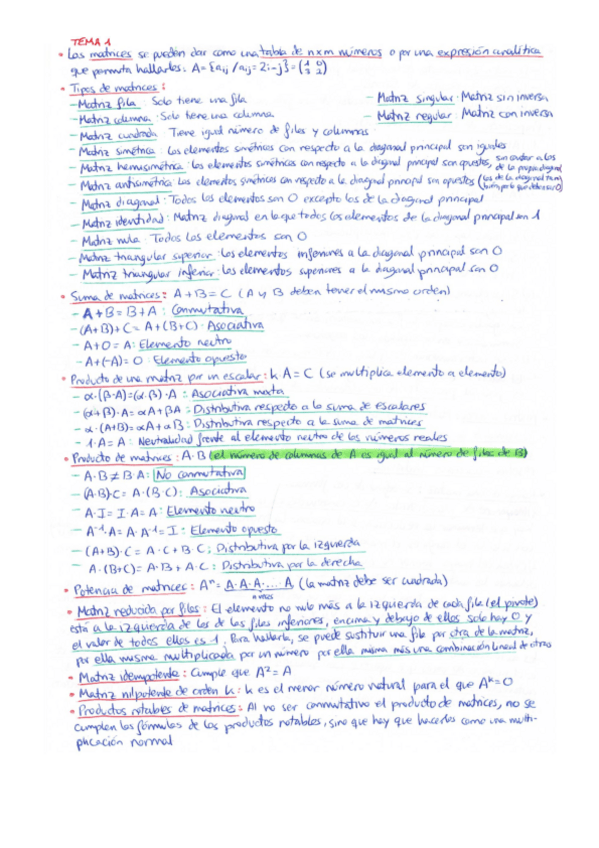 TEMA 1
• Las matrices se pueden dar como una tabla de n x m números o por una expresión analítica
que permita hallarlos: A = {aij / aij = 2i-j} = (1 0
3 2)
• Tipos de matrices:
- Matriz fila: Solo tiene una fila
- Matriz singular: Matriz sin inversa
- Matriz columna: Solo tiene una columna
- Matriz regular: Matriz con inversa
- Matriz cuadrada: Tiene igual número de filas y columnas
- Matriz simétrica: Los elementos simétricos con respecto a la diagonal principal son iguales
- Matriz hemisimétrica: Los elementos simétricos con respecto a la diagonal principal son opuestos, sin contar a los
de la propia diagonal
- Matriz antisimétrica: Los elementos simétricos con respecto a la diagonal principal son opuestos (los de la diagonal también, por lo que deben ser 0)
- Matriz diagonal: Todos los elementos son 0 excepto los de la diagonal principal
- Matriz identidad: Matriz diagonal en la que todos los elementos de la diagonal principal son 1
- Matriz nula: Todos los elementos son 0
- Matriz triangular superior: Los elementos inferiores a la diagonal principal son 0
- Matriz triangular inferior: Los elementos superiores a la diagonal principal son 0
• Suma de matrices: A + B = C (A y B deben tener el mismo orden)
- A + B = B + A : Conmutativa
- (A+B) + C = A + (B+C) : Asociativa
- A + O = A : Elemento neutro
- A + (-A) = O : Elemento opuesto
• Producto de una matriz por un escalar: k·A = C (se multiplica elemento a elemento)
- α·(β·A) = (α·β)·A : Asociativa mixta
- (α+β)·A = αA + βA : Distributiva respecto a la suma de escalares
- α·(A+B) = αA + αB : Distributiva respecto a la suma de matrices
- 1·A = A : Neutralidad frente al elemento neutro de los números reales
• Producto de matrices: A·B (el número de columnas de A es igual al número de filas de B)
- A·B ≠ B·A : No conmutativa
- (A·B)·C = A·(B·C) : Asociativa
- A·I = I·A = A : Elemento neutro
- A⁻¹·A = A·A⁻¹ = I : Elemento opuesto
- (A+B)·C = A·C + B·C : Distributiva por la izquierda
- A·(B+C) = A·B + A·C : Distributiva por la derecha
• Potencia de matrices: Aⁿ = A·A·A·...·A (la matriz debe ser cuadrada)
n veces
• Matriz reducida por filas: El elemento no nulo más a la izquierda de cada fila (el pivote)
está a la izquierda de los de las filas inferiores, encima y debajo de ellos solo hay 0 y
el valor de todos ellos es 1. Para hallarla, se puede sustituir una fila por otra de la matriz,
por ella misma multiplicada por un número o por ella misma más una combinación lineal de otras
• Matriz idempotente: Cumple que A² = A
• Matriz nilpotente de orden k: k es el menor número natural para el que Aᵏ = O
• Productos notables de matrices: Al no ser conmutativo el producto de matrices, no se
cumplen las fórmulas de los productos notables, sino que hay que hacerlos como una multi-
plicación normal